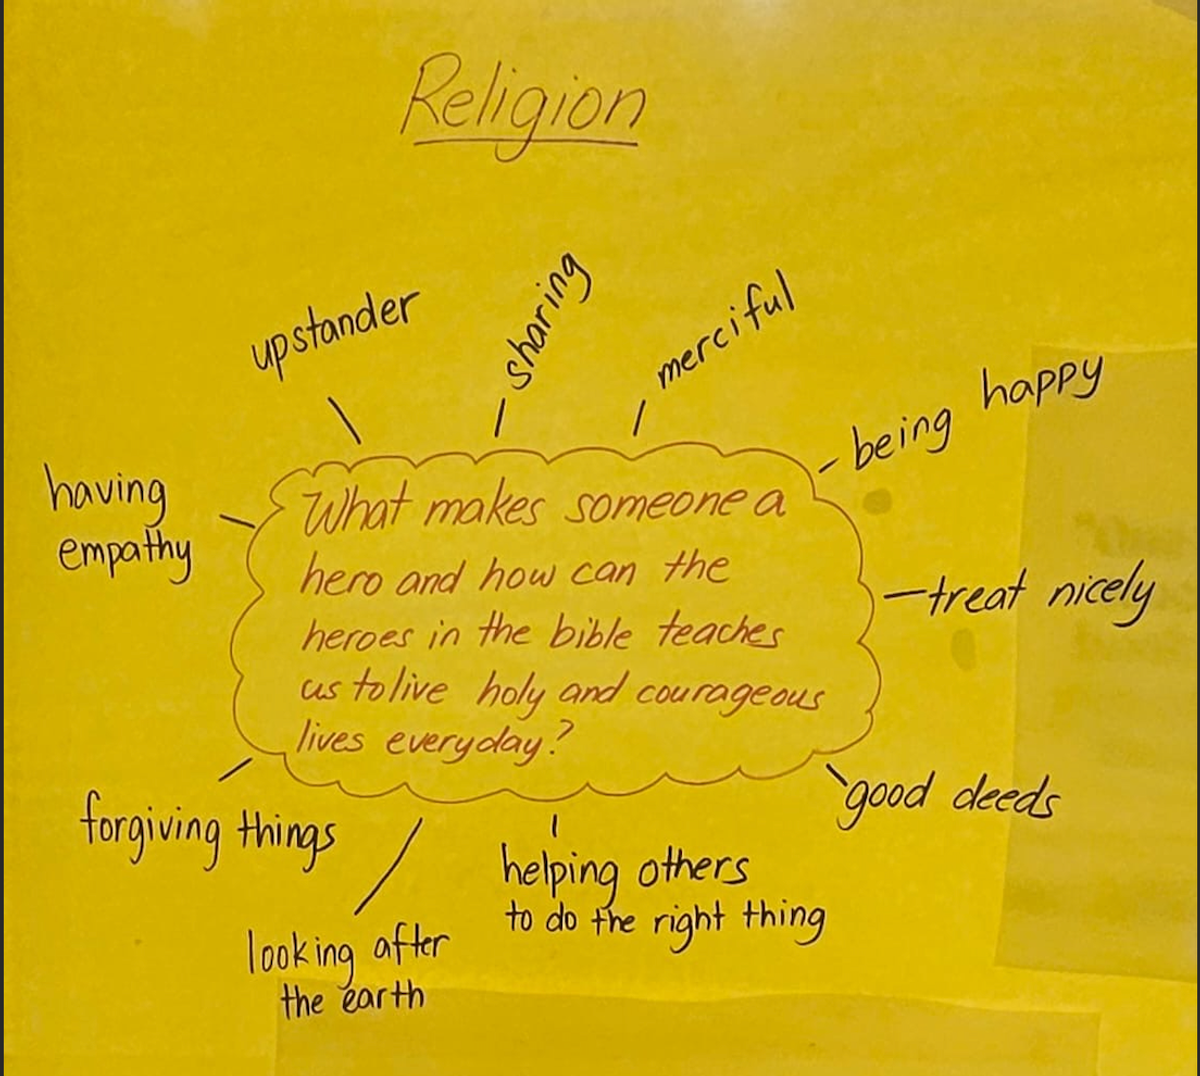 Religion
upstander
sharing
merciful
being happy
having
empathy
What makes someone a
hero and how can the
heroes in the bible teaches
us to live holy and courageous
lives everyday?
treat nicely
good deeds
forgiving things
helping others
to do the right thing
looking after
the earth